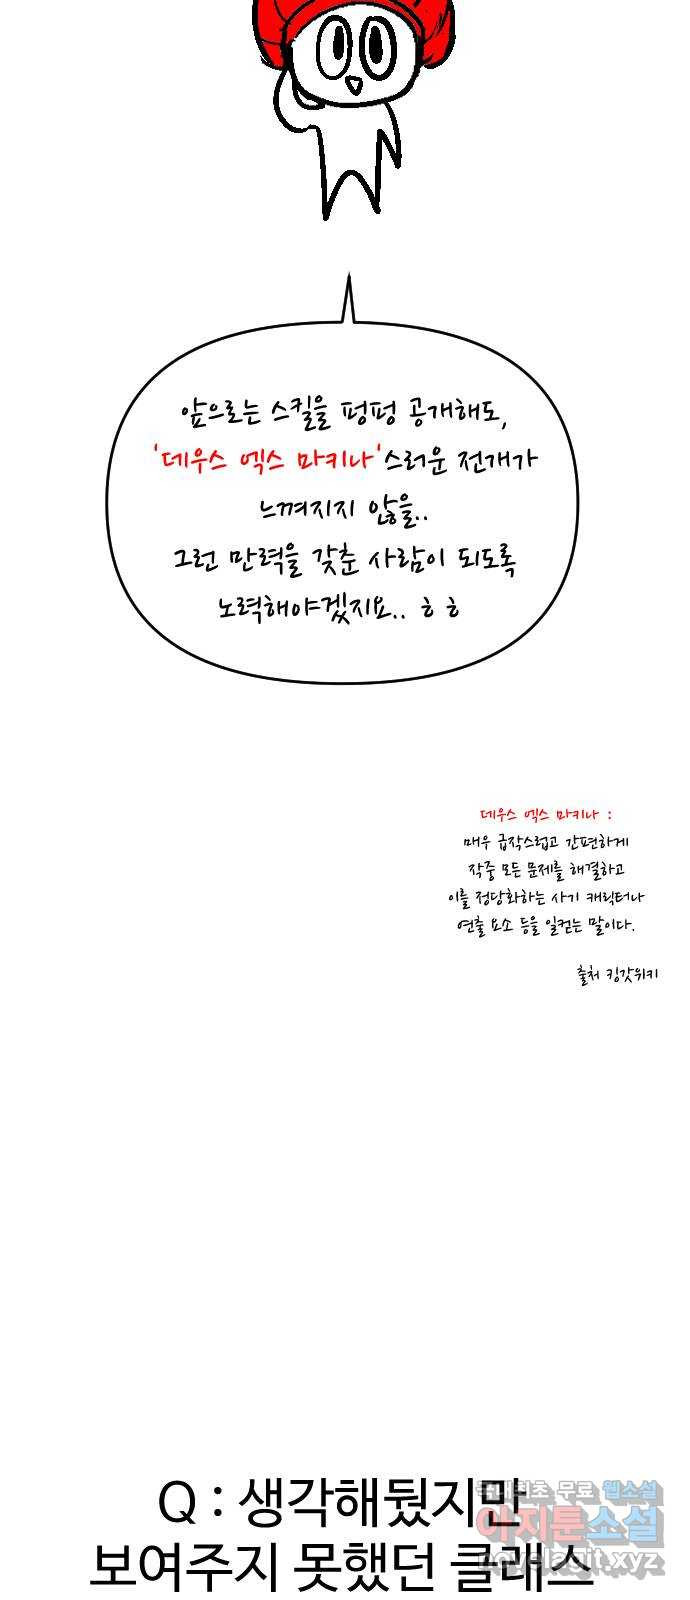 앞으로는 스킬을 펑펑 공개해도,
'데우스 엑스 마키나'스러운 전개가
느껴지지 않을..
그런 만력을 갖춘 사람이 되도록
노력해야겠지요.. ㅎㅎ
데우스 엑스 마키나 :
매우 급작스럽고 간편하게
작중 모든 문제를 해결하고
이를 정당화하는 사기 캐릭터나
연출 요소 등을 일컫는 말이다.
출처 킹갓위키
Q : 생각해뒀지만
보여주지 못했던 클래스
국내최초 무료 웹소설
아지툰소설
novelagit.xyz